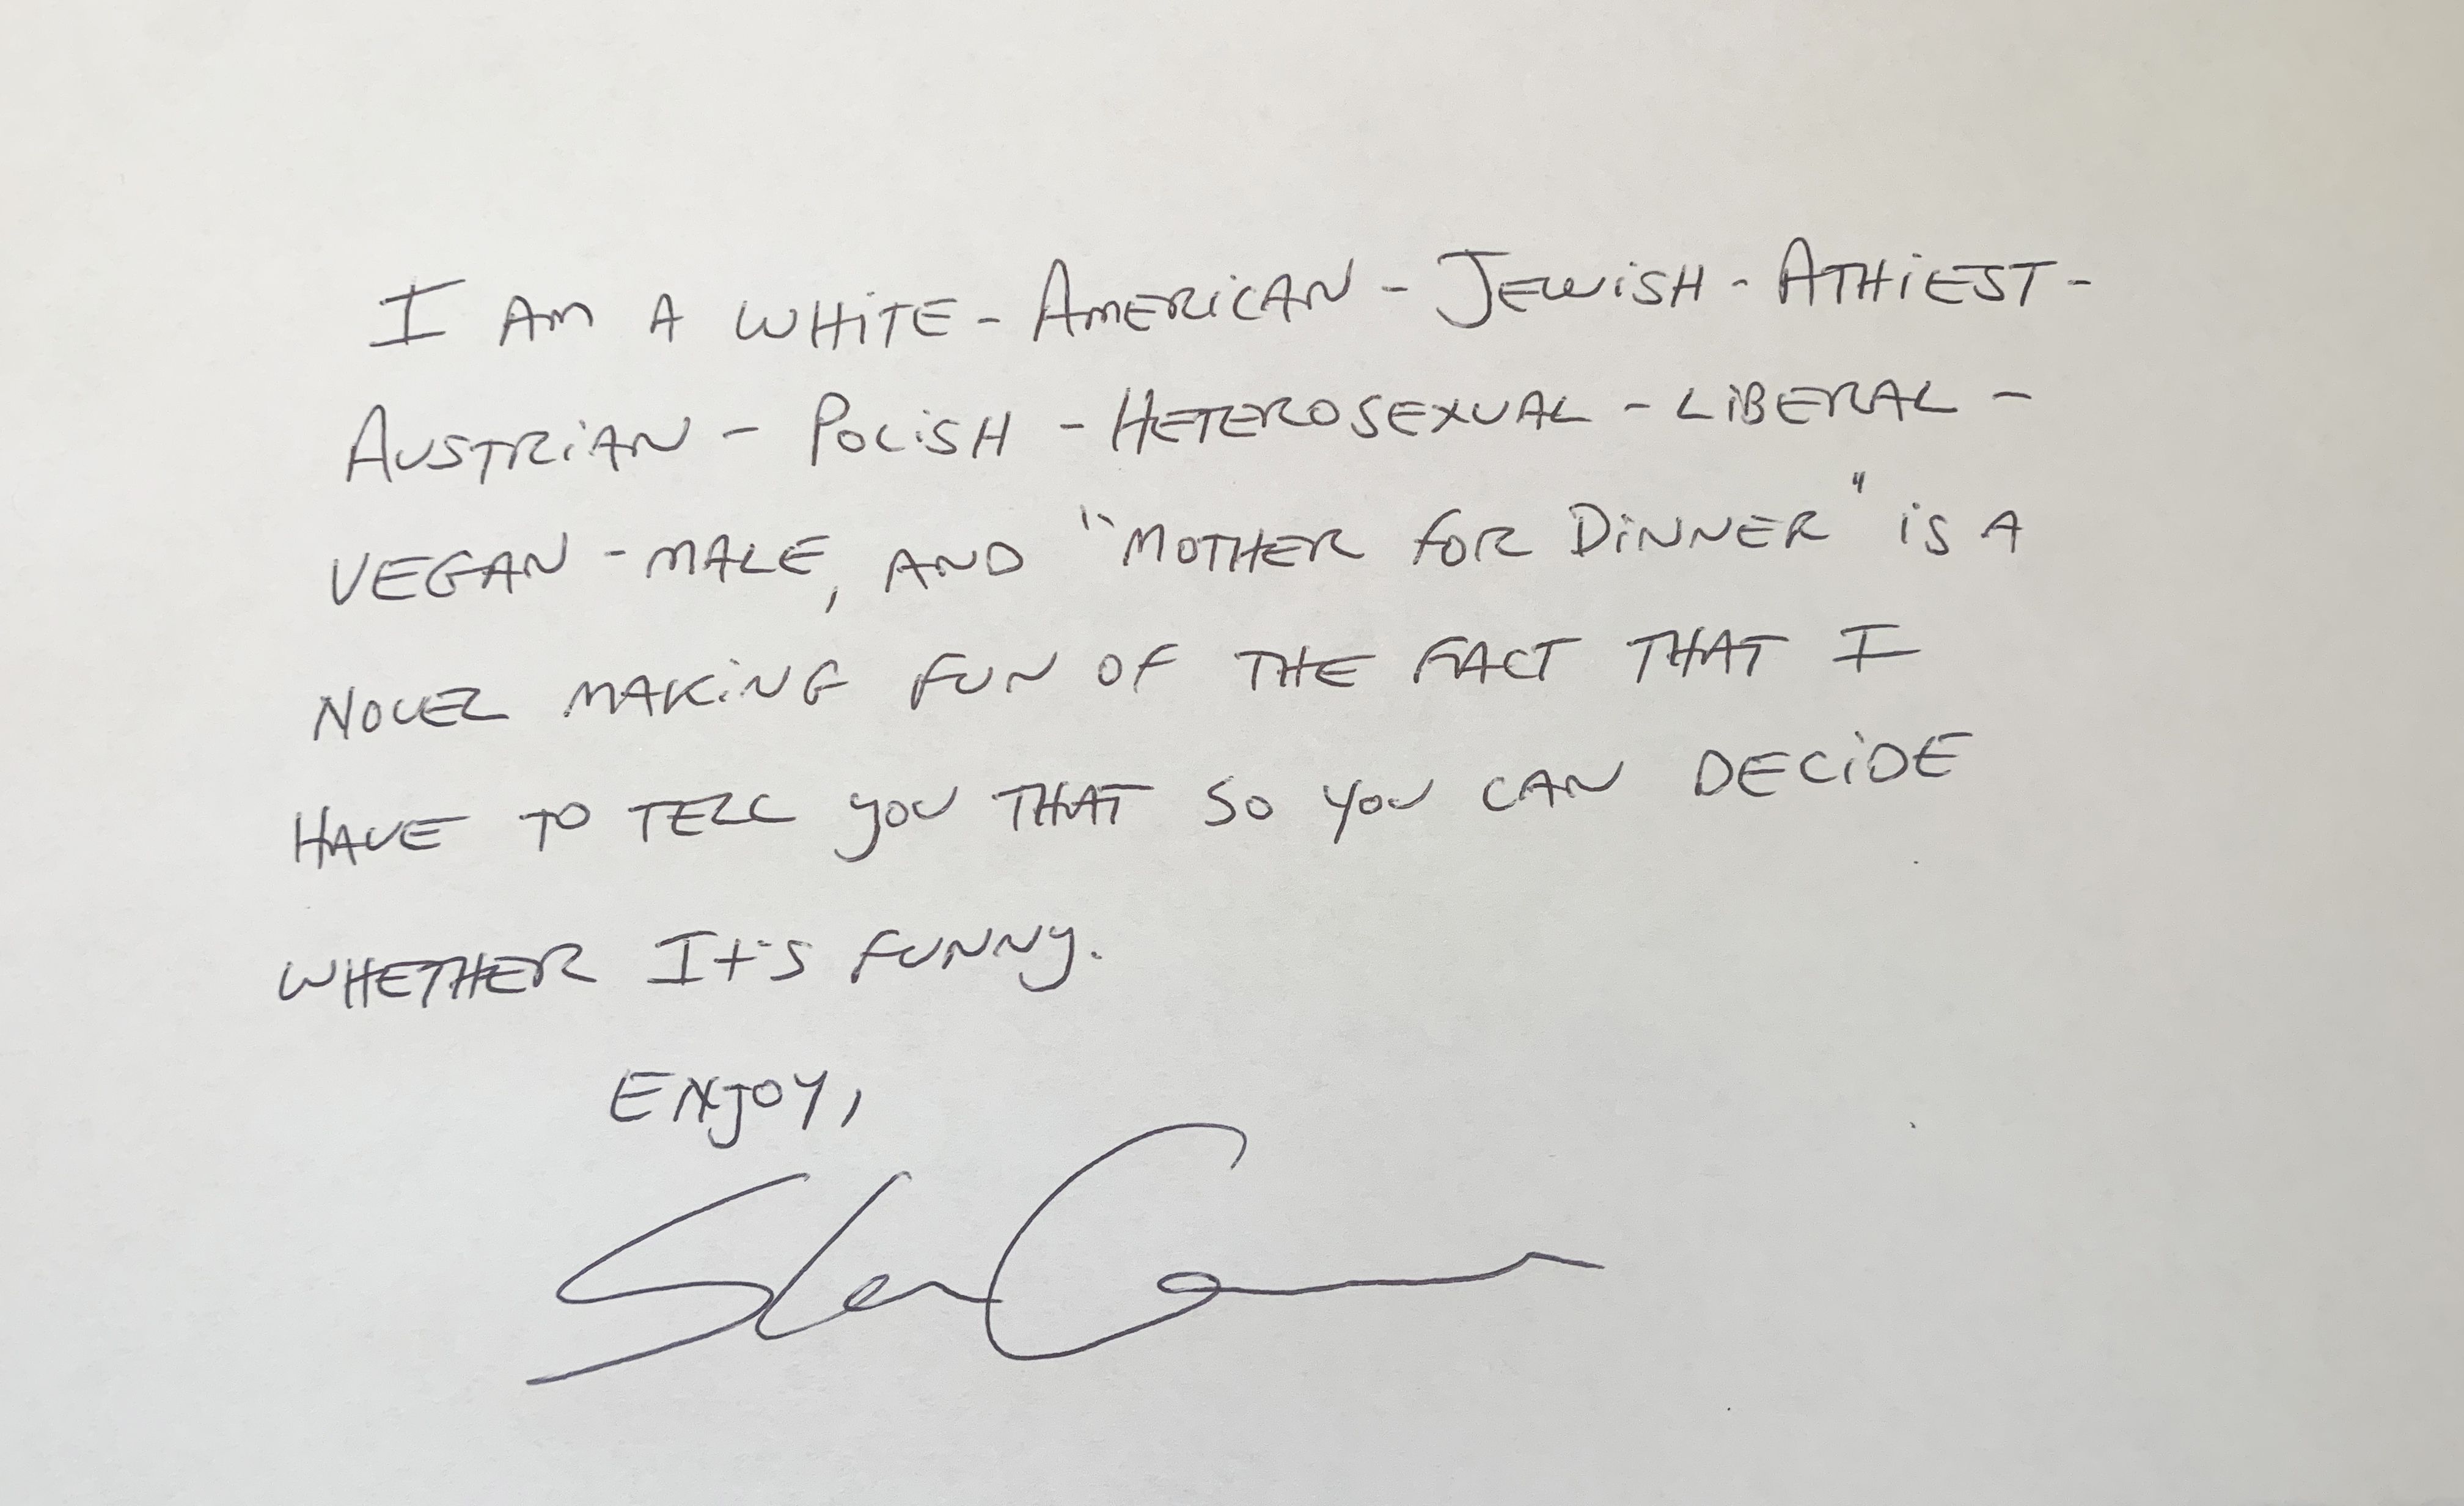 I AM A WHITE - AMERICAN - JEWISH - ATHIEST -
AUSTRIAN - POLISH - HETEROSEXUAL - LIBERAL -
VEGAN - MALE, AND "MOTHER FOR DINNER" IS A
NOVEL MAKING FUN OF THE FACT THAT I
HAVE TO TELL YOU THAT SO YOU CAN DECIDE
WHETHER It'S FUNNY.
ENJOY,